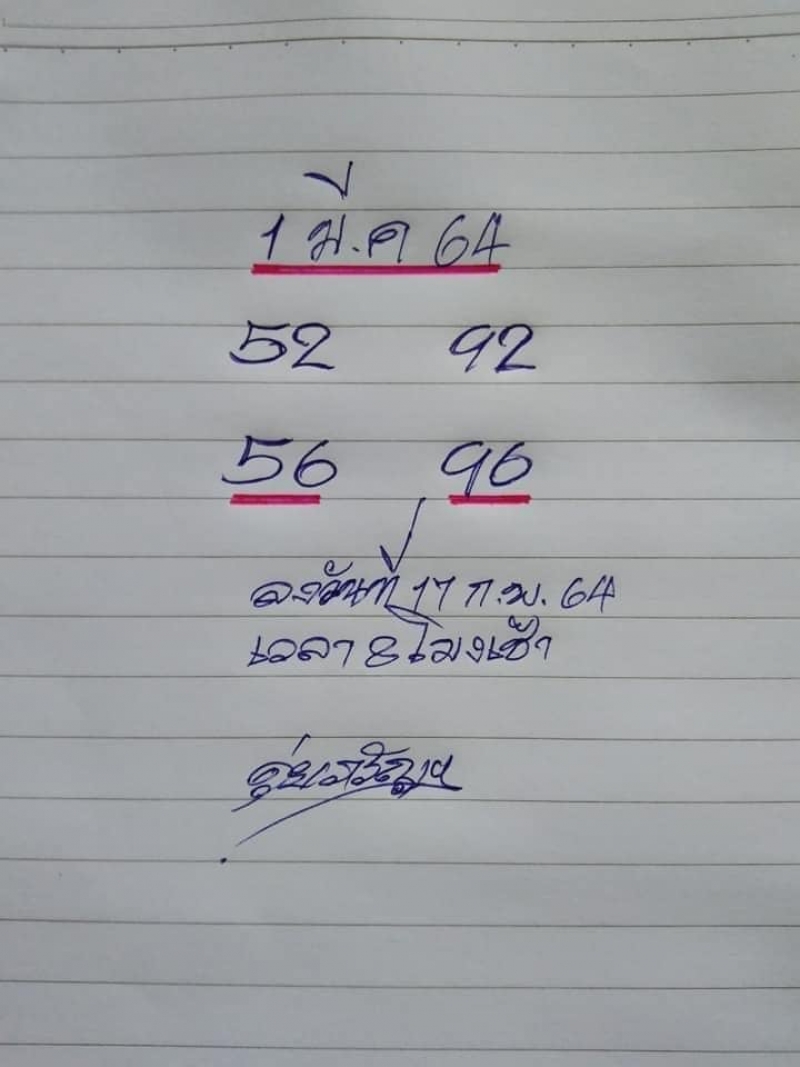 1 มี.ค 64
52 92
56 96
ลงวันที่ 17 ก.พ. 64
เวลา 8 โมงเช้า